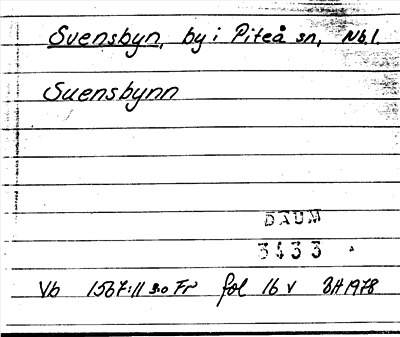 Svensbyn, by i Piteå sn, Nb l.
Suensbynn
DAUM
3433
Vb 1567:11 s.o Fr fol 16 v BH 1978